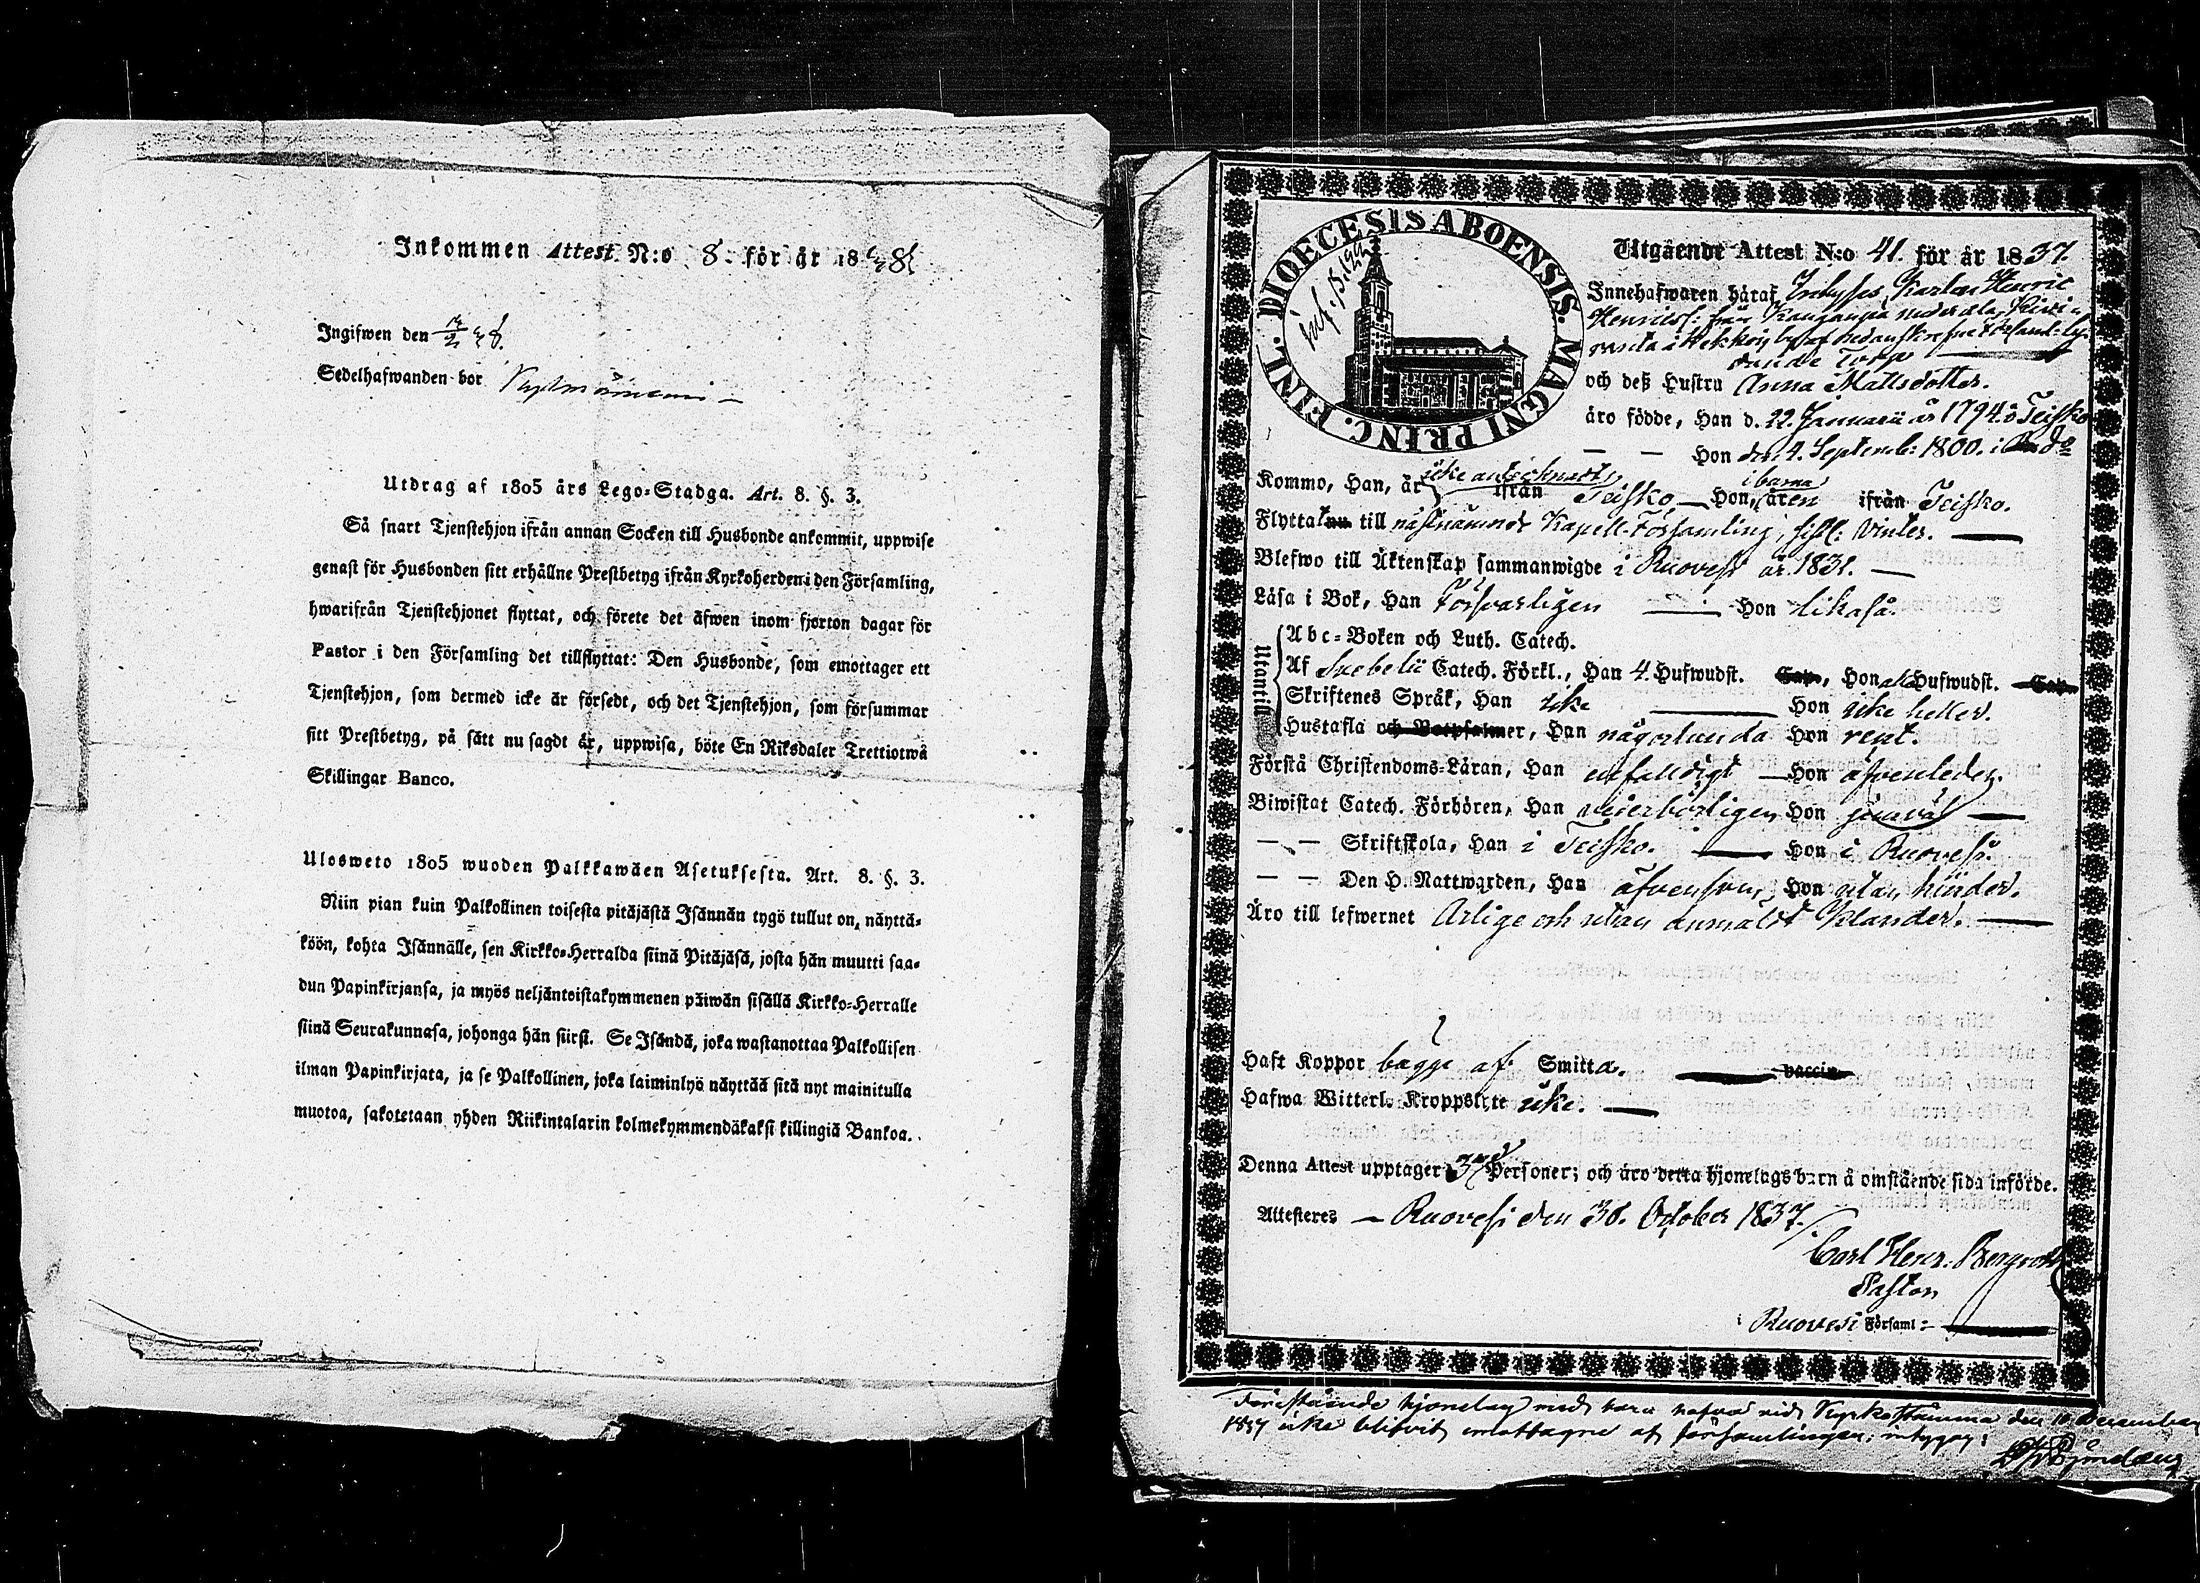 Inkommen Attest N:o 8. för år 1838
Ingifwen den 38.
Sedelhafwanden bor
Utdrag af 1805 års Lego-Stadga. Art. 8. §. 3.
Så snart Tjenstehjon ifrån annan Socken till Husbonde ankommit, uppwise
genast för Husbonden sitt erhållne Prestbetyg ifrån Kyrkoherden i den Församling,
hwarifrån Tjenstehjonet flyttat, och förete det äfwen inom fjorton dagar för
Pastor i den Församling det tillflyttat: Den Husbonde, som emottager ett
Tjenstehjon, som dermed icke är försedt, och det Tjenstehjon, som försummar
sitt Prestbetyg, på sätt nu sagdt är, uppwisa, böte En Riksdaler Trettiotwå
Skillingar Banco.
Ulosweto 1805 wuoden Palkkawäen Asetuksesta. Art. 8. §. 3.
Niin pian kuin Palkollinen toisesta pitäjästä Isännän tygö tullut on, näyttä-
köön, kohta Isännälle, sen Kirkko-Herralda siinä Pitäjäsä, josta hän muutti saa-
dun Papinkirjansa, ja myös neljäntoistakymmenen päiwän sisällä Kirkko-Herralle
siinä Seurakunnasa, johonga hän siirst. Se Isändä, joka wastanottaa Palkollisen
ilman Papinkirjata, ja se Palkollinen, joka laiminlyö näyttää sitä nyt mainitulla
muotoa, sakotetaan yhden Riikintalarin kolmekymmendäkaksi killingiä Bankoa.
DIOECESIS ABOENSIS. MAGNI PRINC. FINL.
Utgående Attest N:o 41. för år 1837.
Innehafwaren häraf Inhyses Karlen Henric
Henricss: från
Torp
och deß Hustru Anna Mattsdotter.
äro födde, Han d. 22. Januarii år 1794. i Teisko
Hon den 4. Septemb: 1800. i do
Kommo, Han, är icke antecknadt ifrån Teisko Hon, i barnaåren ifrån Teisko.
Flyttat till nästnämnde Kapell-Församling, sistl: Vinter.
Blefwo till Äktenskap sammanwigde i Ruovesi år 1831.
Läsa i Bok, Han Försvarligen Hon likaså.
Utantill
Abc-Boken och Luth. Catech.
Af Svebelii Catech. Förkl., Han 4. Hufwudst. Cap., Hon alla Hufwudst. Cap.
Skriftenes Språk, Han icke Hon icke heller.
Hustafla och Botpsalmer, Han någorlunda Hon rent.
Förstå Christendoms-Läran, Han enfaldigt Hon äfvenledes.
Biwistat Catech. Förhören, Han vederbörligen Hon jemväl
Skriftskola, Han i Teisko. Hon i Ruovesi.
Den H. Nattwarden, Han äfvensom, Hon utan hinder.
Äro till lefwernet Ärlige och utan anmäldt Klander.
Haft Koppor bägge af Smitta. vaccin
Hafwa Witterl. Kroppslyte icke.
Denna Attest upptager 3 Personer; och äro detta hjonelags barn å omstående sida införde.
Attesteres Ruovesi den 30. October 1837.
Carl Henr: Bergroth
Pastor
i Ruovesi Församl:
Förestående hjonelag med barn hafva vid Kyrkostämma den 10 December
1837 icke blifvit emottagne af församlingen; intygar: